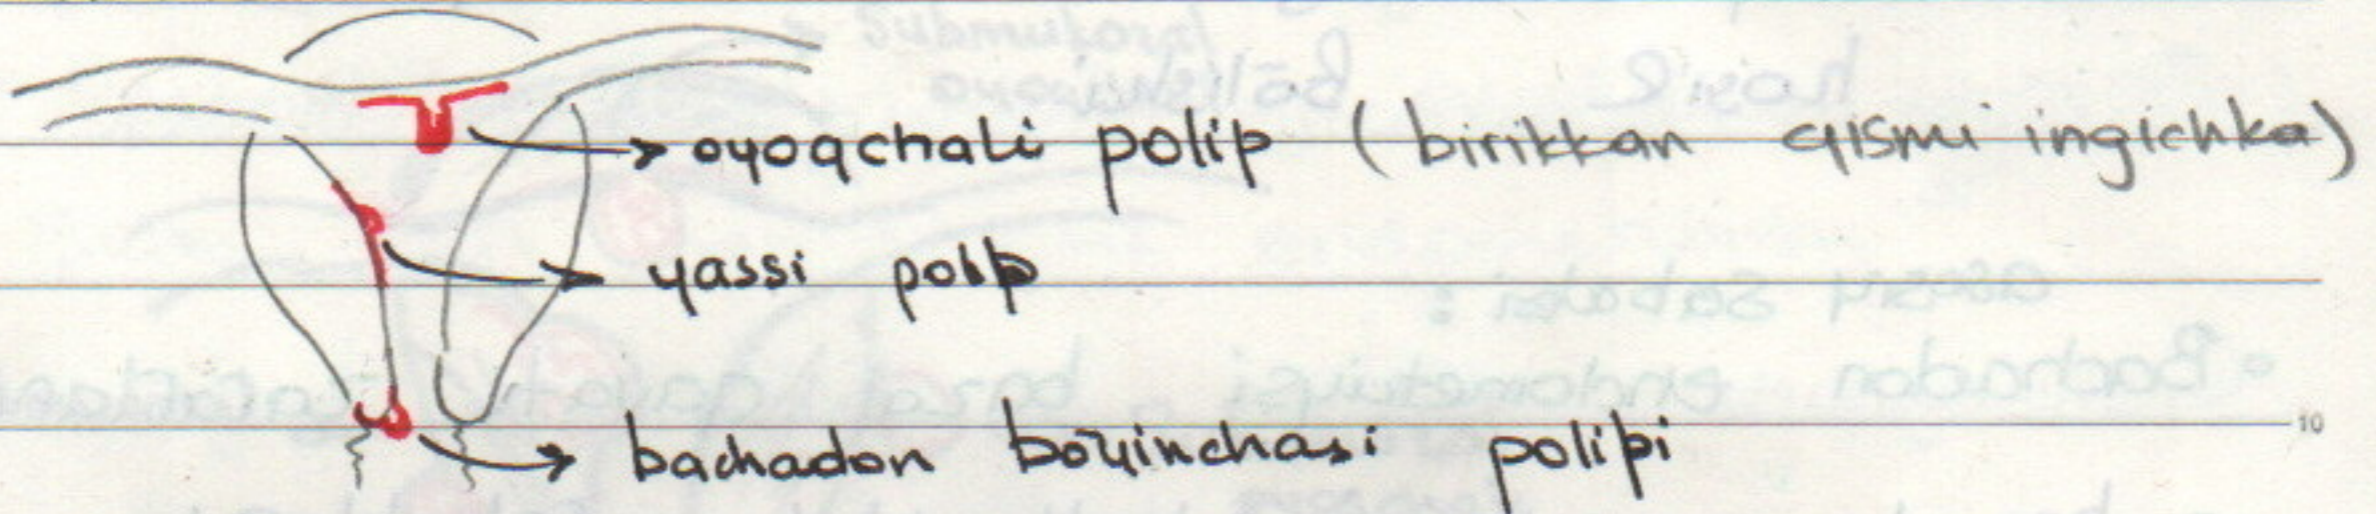 oyoqchali polip (birikkan qismi ingichka)
yassi polip
10
bachadon bo'yinchasi polipi